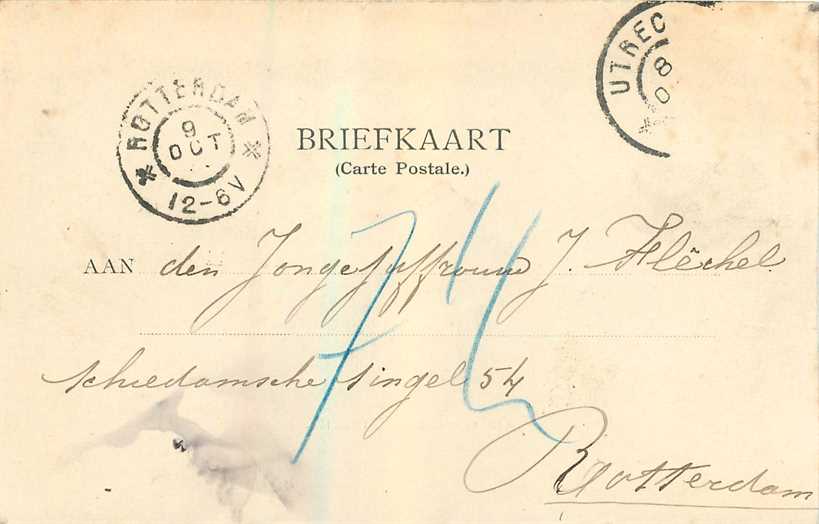 UTREC
8
O
ROTTERDAM
9
OCT
12-6V
BRIEFKAART
(Carte Postale.)
AAN den Jongejuffrouw J. Flêchel
Schiedamsche singel 54
Rotterdam